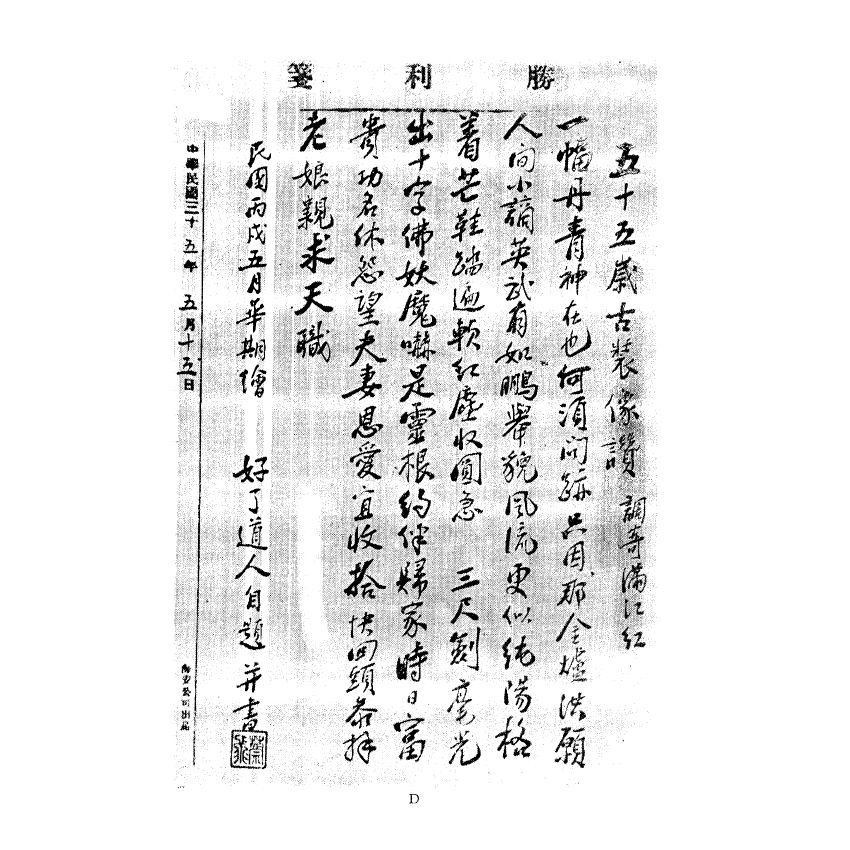 勝利箋
五十五歲古裝像讚 調寄滿江紅
一幅丹青神在也何須問跡只因那金爐洪願
人間小謫英武有如鵬舉貌風流更似純陽格
着芒鞋踏遍軟紅塵收圓急 三尺劍毫光
出十字佛妖魔嚇是靈根約伴歸家時日富
貴功名休怨望夫妻恩愛宜收拾快回頭恭拜
老娘親求天職
民國丙戌五月華期繪 好了道人自題并書
中華民國三十五年 五月十五日
公司出品
D